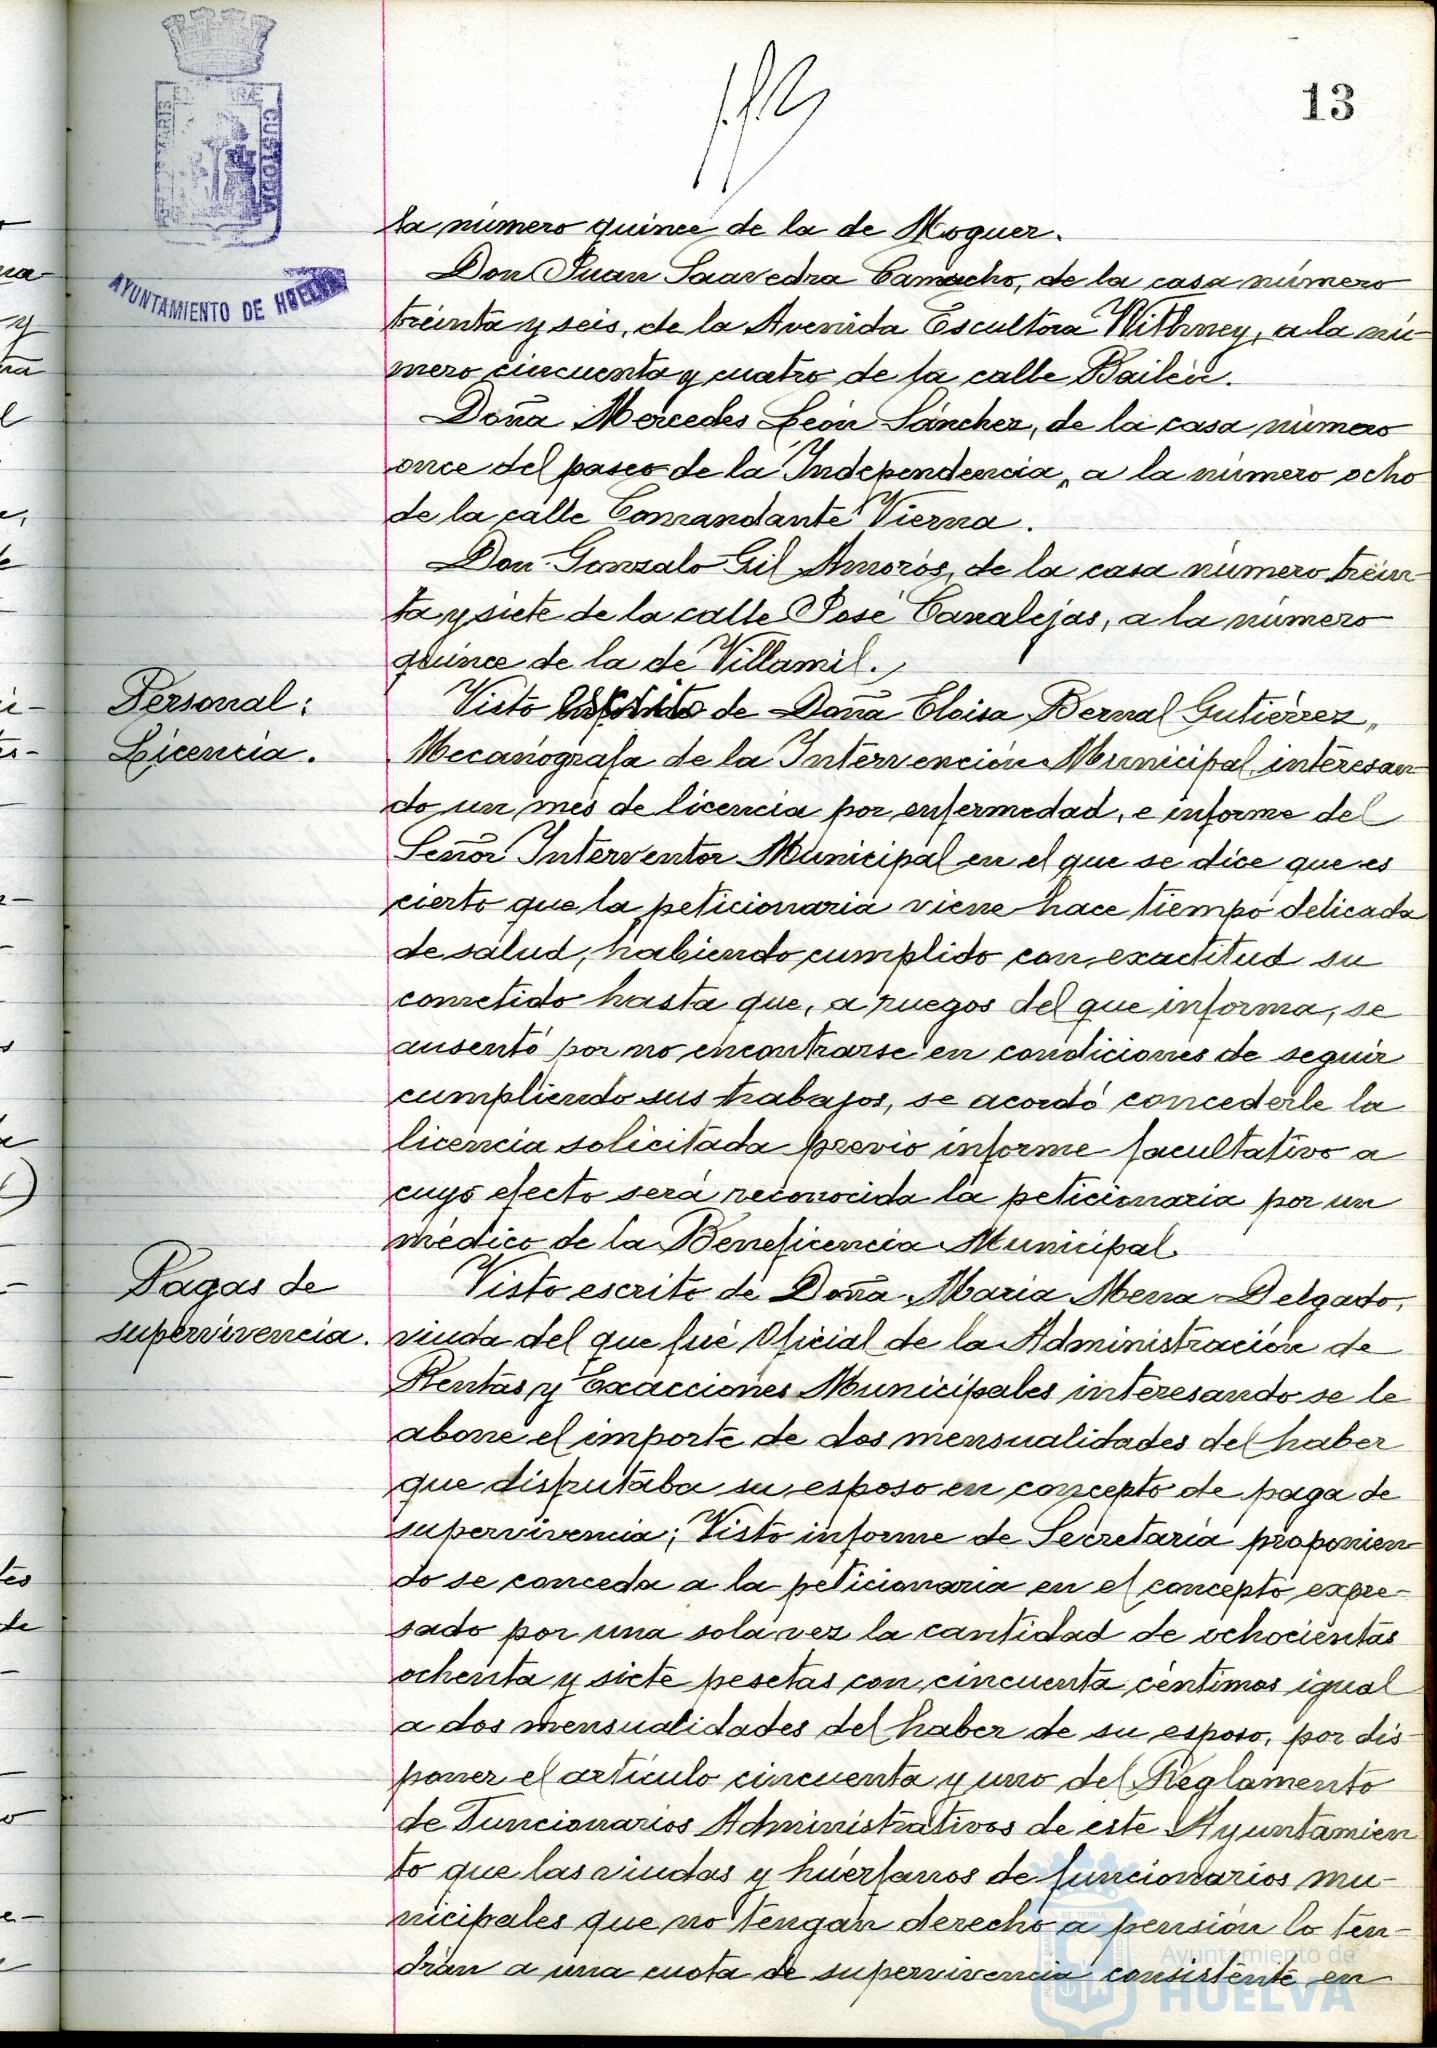 13
AYUNTAMIENTO DE HUELVA
la número quince de la de Moguer.
Don Juan Saavedra Camacho, de la casa número
treinta y seis, de la Avenida Escultora Withney, a la nú-
mero cincuenta y cuatro de la calle Bailén.
Doña Mercedes León Sánchez, de la casa número
once del paseo de la Independencia, a la número ocho
de la calle Comandante Vierna.
Don Gonzalo Gil Amorós, de la casa número trein-
ta y siete de la calle José Canalejas, a la número
quince de la de Villamil.
Personal:
Licencia.
Visto escrito de Doña Eloisa Bernal Gutiérrez,
Mecanógrafa de la Intervención Municipal, interesan-
do un mes de licencia por enfermedad, e informe del
Señor Interventor Municipal en el que se dice que es
cierto que la peticionaria viene hace tiempo delicada
de salud, habiendo cumplido con exactitud su
cometido hasta que, a ruegos del que informa, se
ausentó por no encontrarse en condiciones de seguir
cumpliendo sus trabajos, se acordó concederle la
licencia solicitada previo informe facultativo a
cuyo efecto será reconocida la peticionaria por un
médico de la Beneficencia Municipal.
Pagas de
supervivencia.
Visto escrito de Doña María Mena Delgado,
viuda del que fué Oficial de la Administración de
Rentas y Exacciones Municipales interesando se le
abone el importe de dos mensualidades del haber
que disfrutaba su esposo en concepto de paga de
supervivencia; Visto informe de Secretaría proponien-
do se conceda a la peticionaria en el concepto expre-
sado por una sola vez la cantidad de ochocientas
ochenta y siete pesetas con cincuenta céntimos igual
a dos mensualidades del haber de su esposo, por dis-
poner el artículo cincuenta y uno del Reglamento
de Funcionarios Administrativos de este Ayuntamien
to que las viudas y huérfanos de funcionarios mu-
nicipales que no tengan derecho a pensión lo ten-
drán a una cuota de supervivencia consistente en
Ayuntamiento de
HUELVA